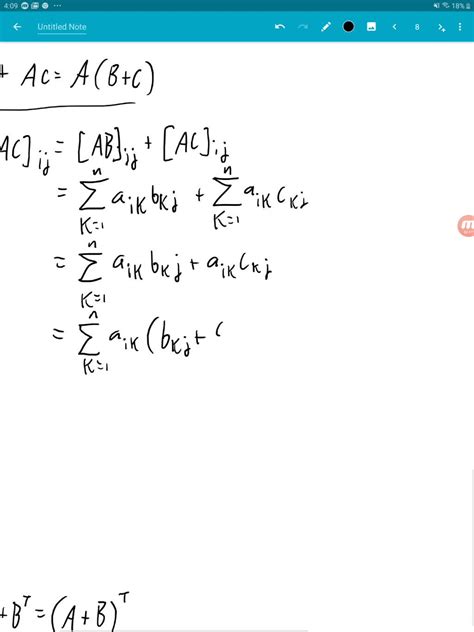 4:09 18%
Untitled Note 8
+ AC = A(B+C)
AC]ij = [AB]ij + [AC]ij
= n∑K=1 aiK bKj + n∑K=1 aiK cKj
= n∑K=1 aiK bKj + aiK cKj
= n∑K=1 aiK (bKj + (
+ Bᵀ = (A+B)ᵀ